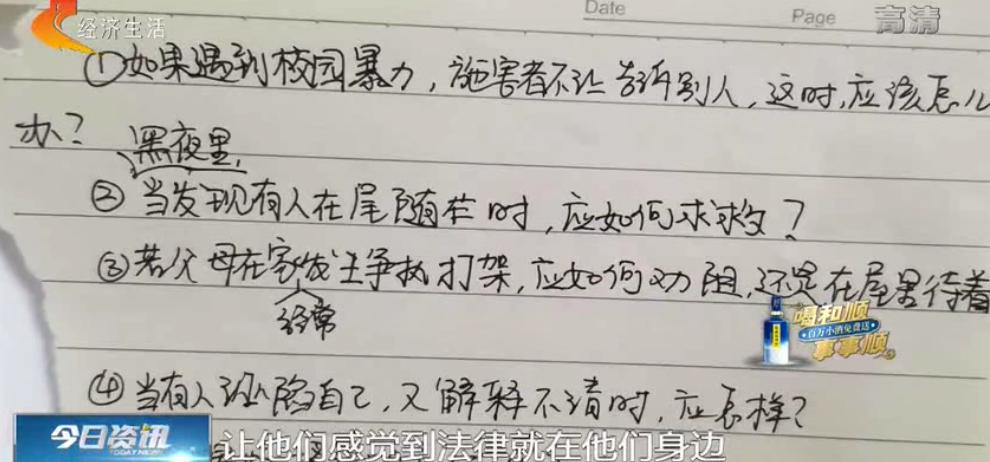 经济生活
Date
Page
高清
①如果遇到校园暴力，施害者不让告诉别人，这时，应该怎么
办？
黑夜里，
②当发现有人在尾随在时，应如何求救？
③若父母在家发生争执打架，应如何劝阻，还是在屋里待着
经常
喝和顺
百万小酒免费送
事事顺
④当有人诬陷自己，又解释不清时，应怎样？
今日资讯
TODAY NEWS
让他们感觉到法律就在他们身边